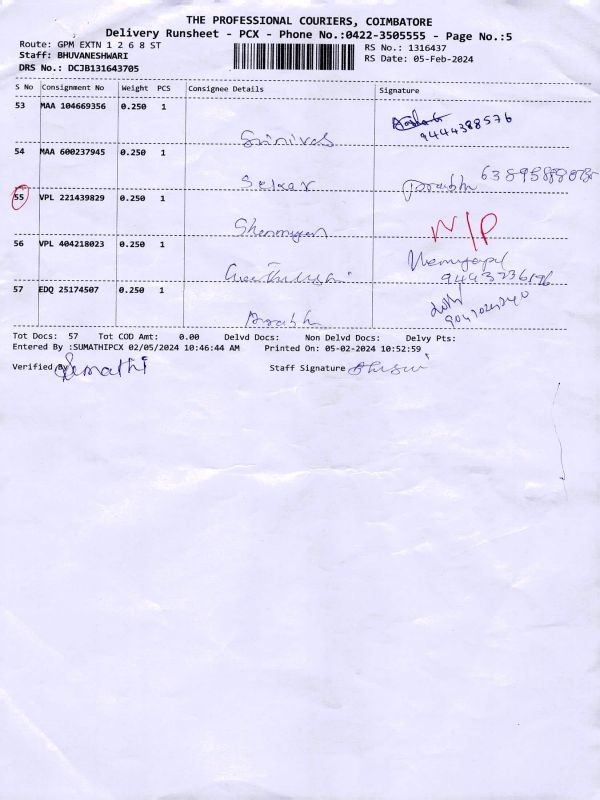 THE PROFESSIONAL COURIERS, COIMBATORE
Delivery Runsheet - PCX - Phone No.:0422-3505555 - Page No.:5
Route: GPM EXTN 1 2 6 8 ST
RS No.: 1316437
Staff: BHUVANESHWARI
RS Date: 05-Feb-2024
DRS No.: DCJB131643705
S No Consignment No Weight PCS Consignee Details Signature
53 MAA 104669356 0.250 1
9444388576
Srinivas
54 MAA 600237945 0.250 1
Sekar Prabhu
55 VPL 221439829 0.250 1
Shanmugam N/P
56 VPL 404218023 0.250 1
57 EDQ 25174507 0.250 1
Prabhu
Tot Docs: 57 Tot COD Amt: 0.00 Delvd Docs: Non Delvd Docs: Delvy Pts:
Entered By :SUMATHIPCX 02/05/2024 10:46:44 AM Printed On: 05-02-2024 10:52:59
Verified By Sumathi Staff Signature